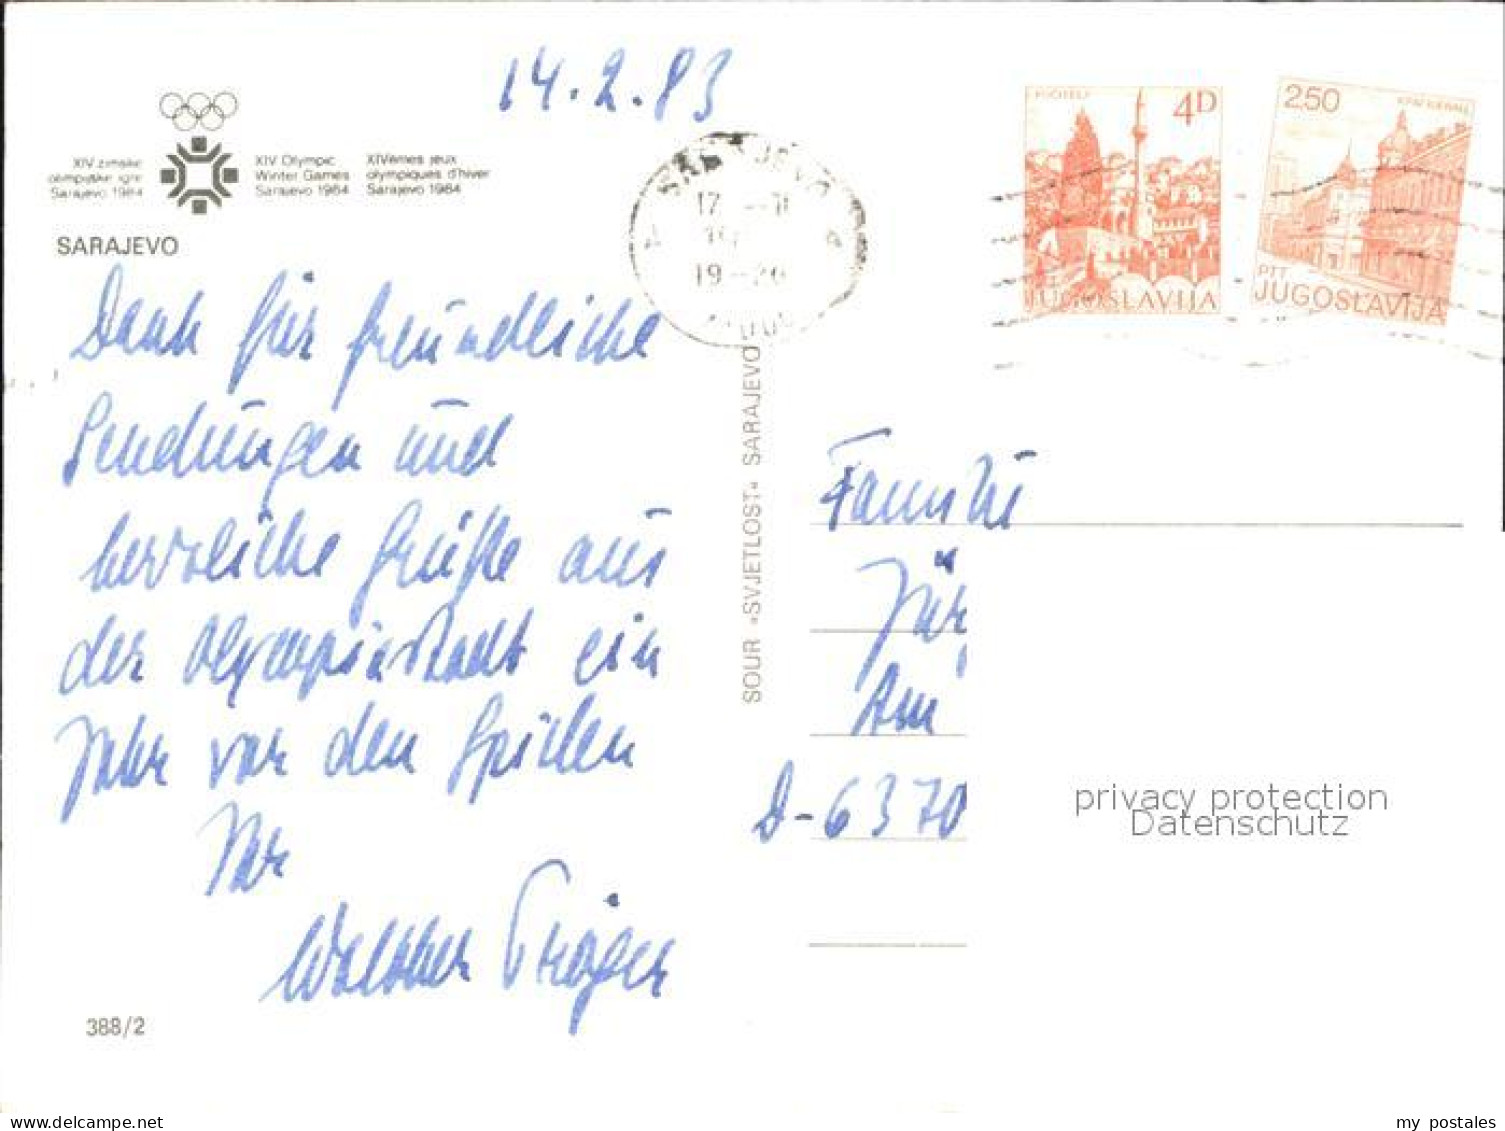 14.2.83
XIV zimske
olimpijske igre
Sarajevo 1984
XIV Olympic
Winter Games
Sarajevo 1984
XIVèmes jeux
olympiques d'hiver
Sarajevo 1984
SARAJEVO
Dank für freundliche
Sendungen und
herzliche Grüße aus
der Olympiastadt ein
Jahr vor den Spielen
Ihr
Walther Tröger
388/2
SOUR »SVJETLOST« SARAJEVO
SARAJEVO
19-20
POČITELJ
4D
JUGOSLAVIJA
2.50
PTT
JUGOSLAVIJA
Familie
Jür
Am
D-6370
privacy protection
Datenschutz
my postales